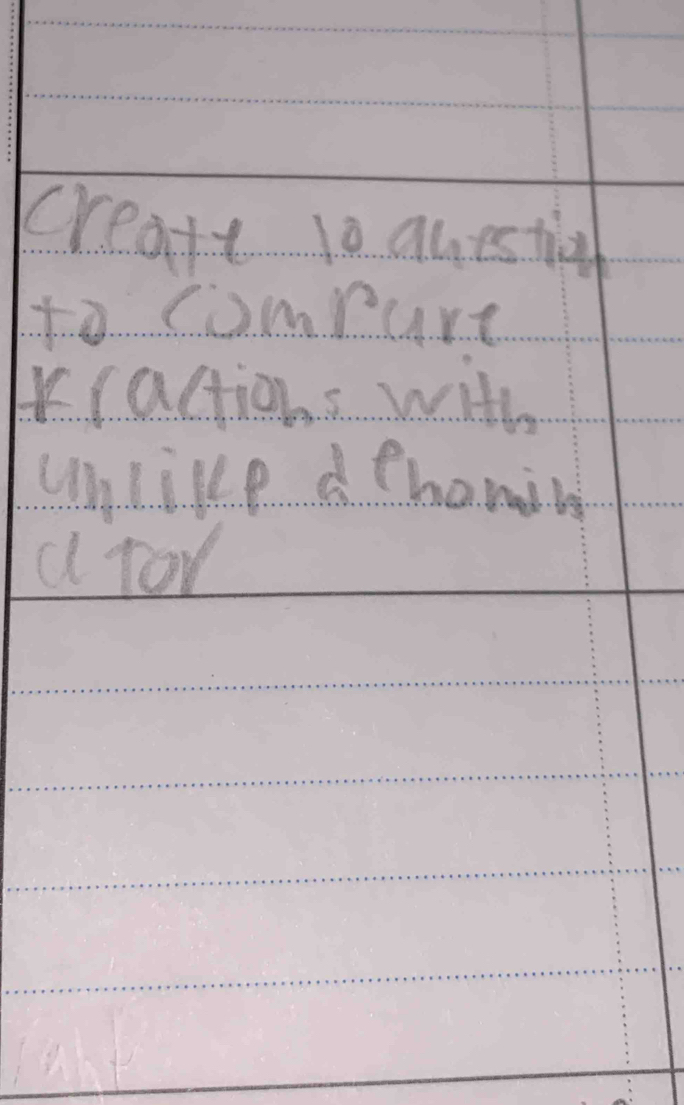 create 10 question
to compare
fractions with
unlike denomin
ator